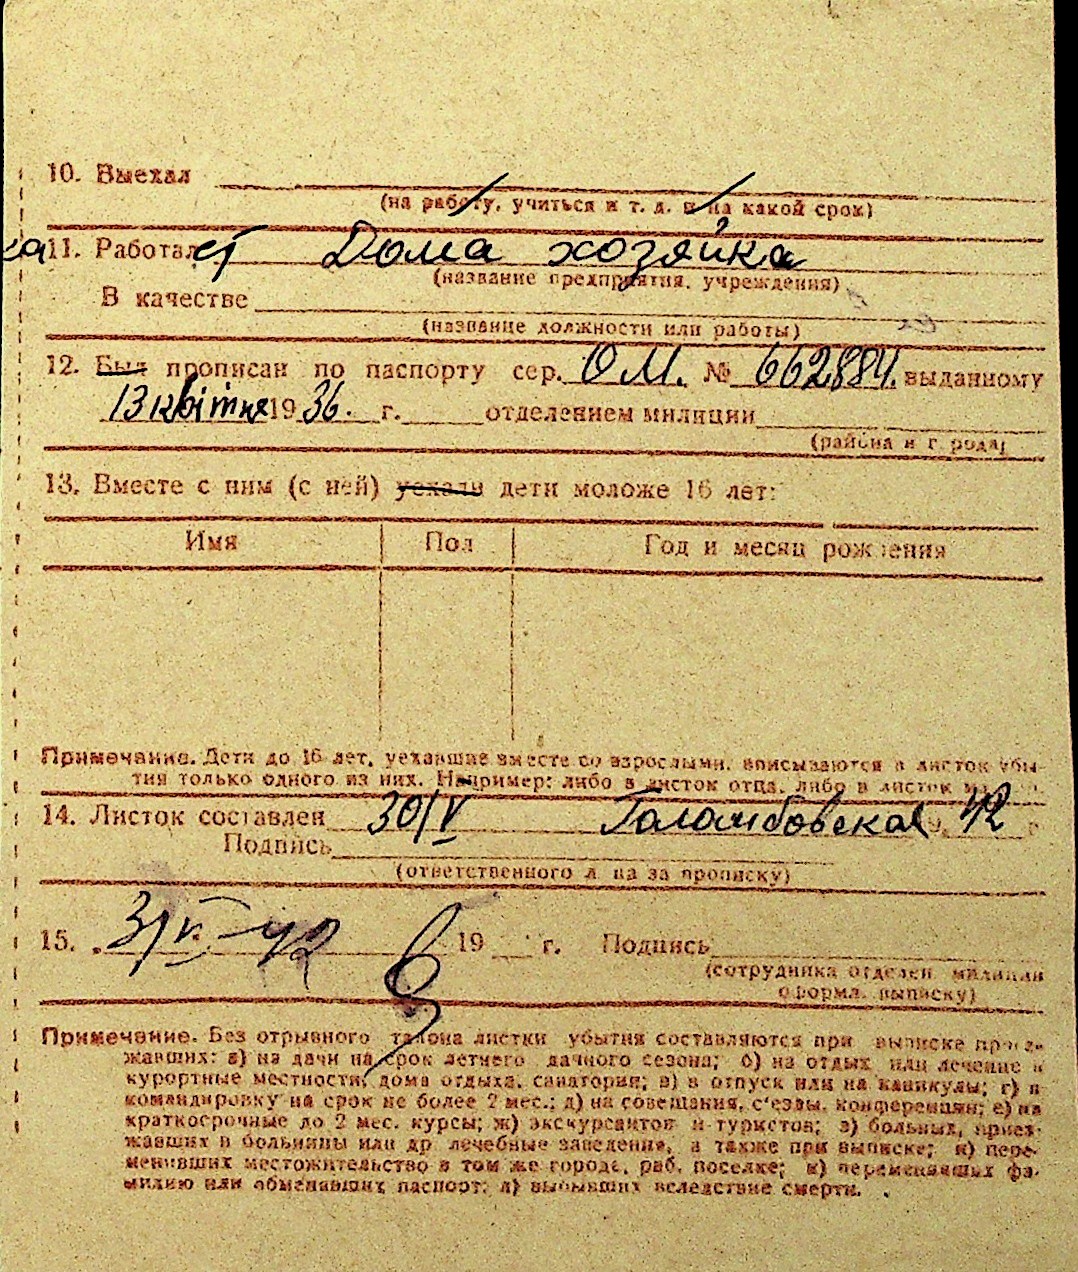 10. Выехал
(на работу, учиться и т. д. и на какой срок)
11. Работает Дома хозяйка
(название предприятия, учреждения)
В качестве
(название должности или работы)
12. Был прописан по паспорту сер. О М. № 662884. выданному
13 квітня 1936. г. отделением милиции
(района и города)
13. Вместе с ним (с ней) уехали дети моложе 16 лет:
Имя Пол Год и месяц рождения
Примечание. Дети до 16 лет, уехавшие вместе со взрослыми, вписываются в листок убы-
тия только одного из них. Например: либо в листок отца, либо в листок
14. Листок составлен 30/V 42 г
Подпись
(ответственного лица за прописку)
15. 31/V-42 19 г. Подпись
(сотрудника отделен. милиции
оформл. выписку)
Примечание. Без отрывного талона листки убытия составляются при выписке приез-
жавших: а) на дачи на срок летнего дачного сезона; б) на отдых или лечение в
курортные местности, дома отдыха, санатории; в) в отпуск или на каникулы; г) в
командировку на срок не более 2 мес.; д) на совещания, с'езды, конференции; е) на
краткосрочные до 2 мес. курсы; ж) экскурсантов и туристов; з) больных, приез-
жавших в больницы или др. лечебные заведения, а также при выписке; и) пере-
менивших местожительство в том же городе, раб. поселке; к) переменивших фа-
милию или обменявших паспорт; л) выбывших вследствие смерти.